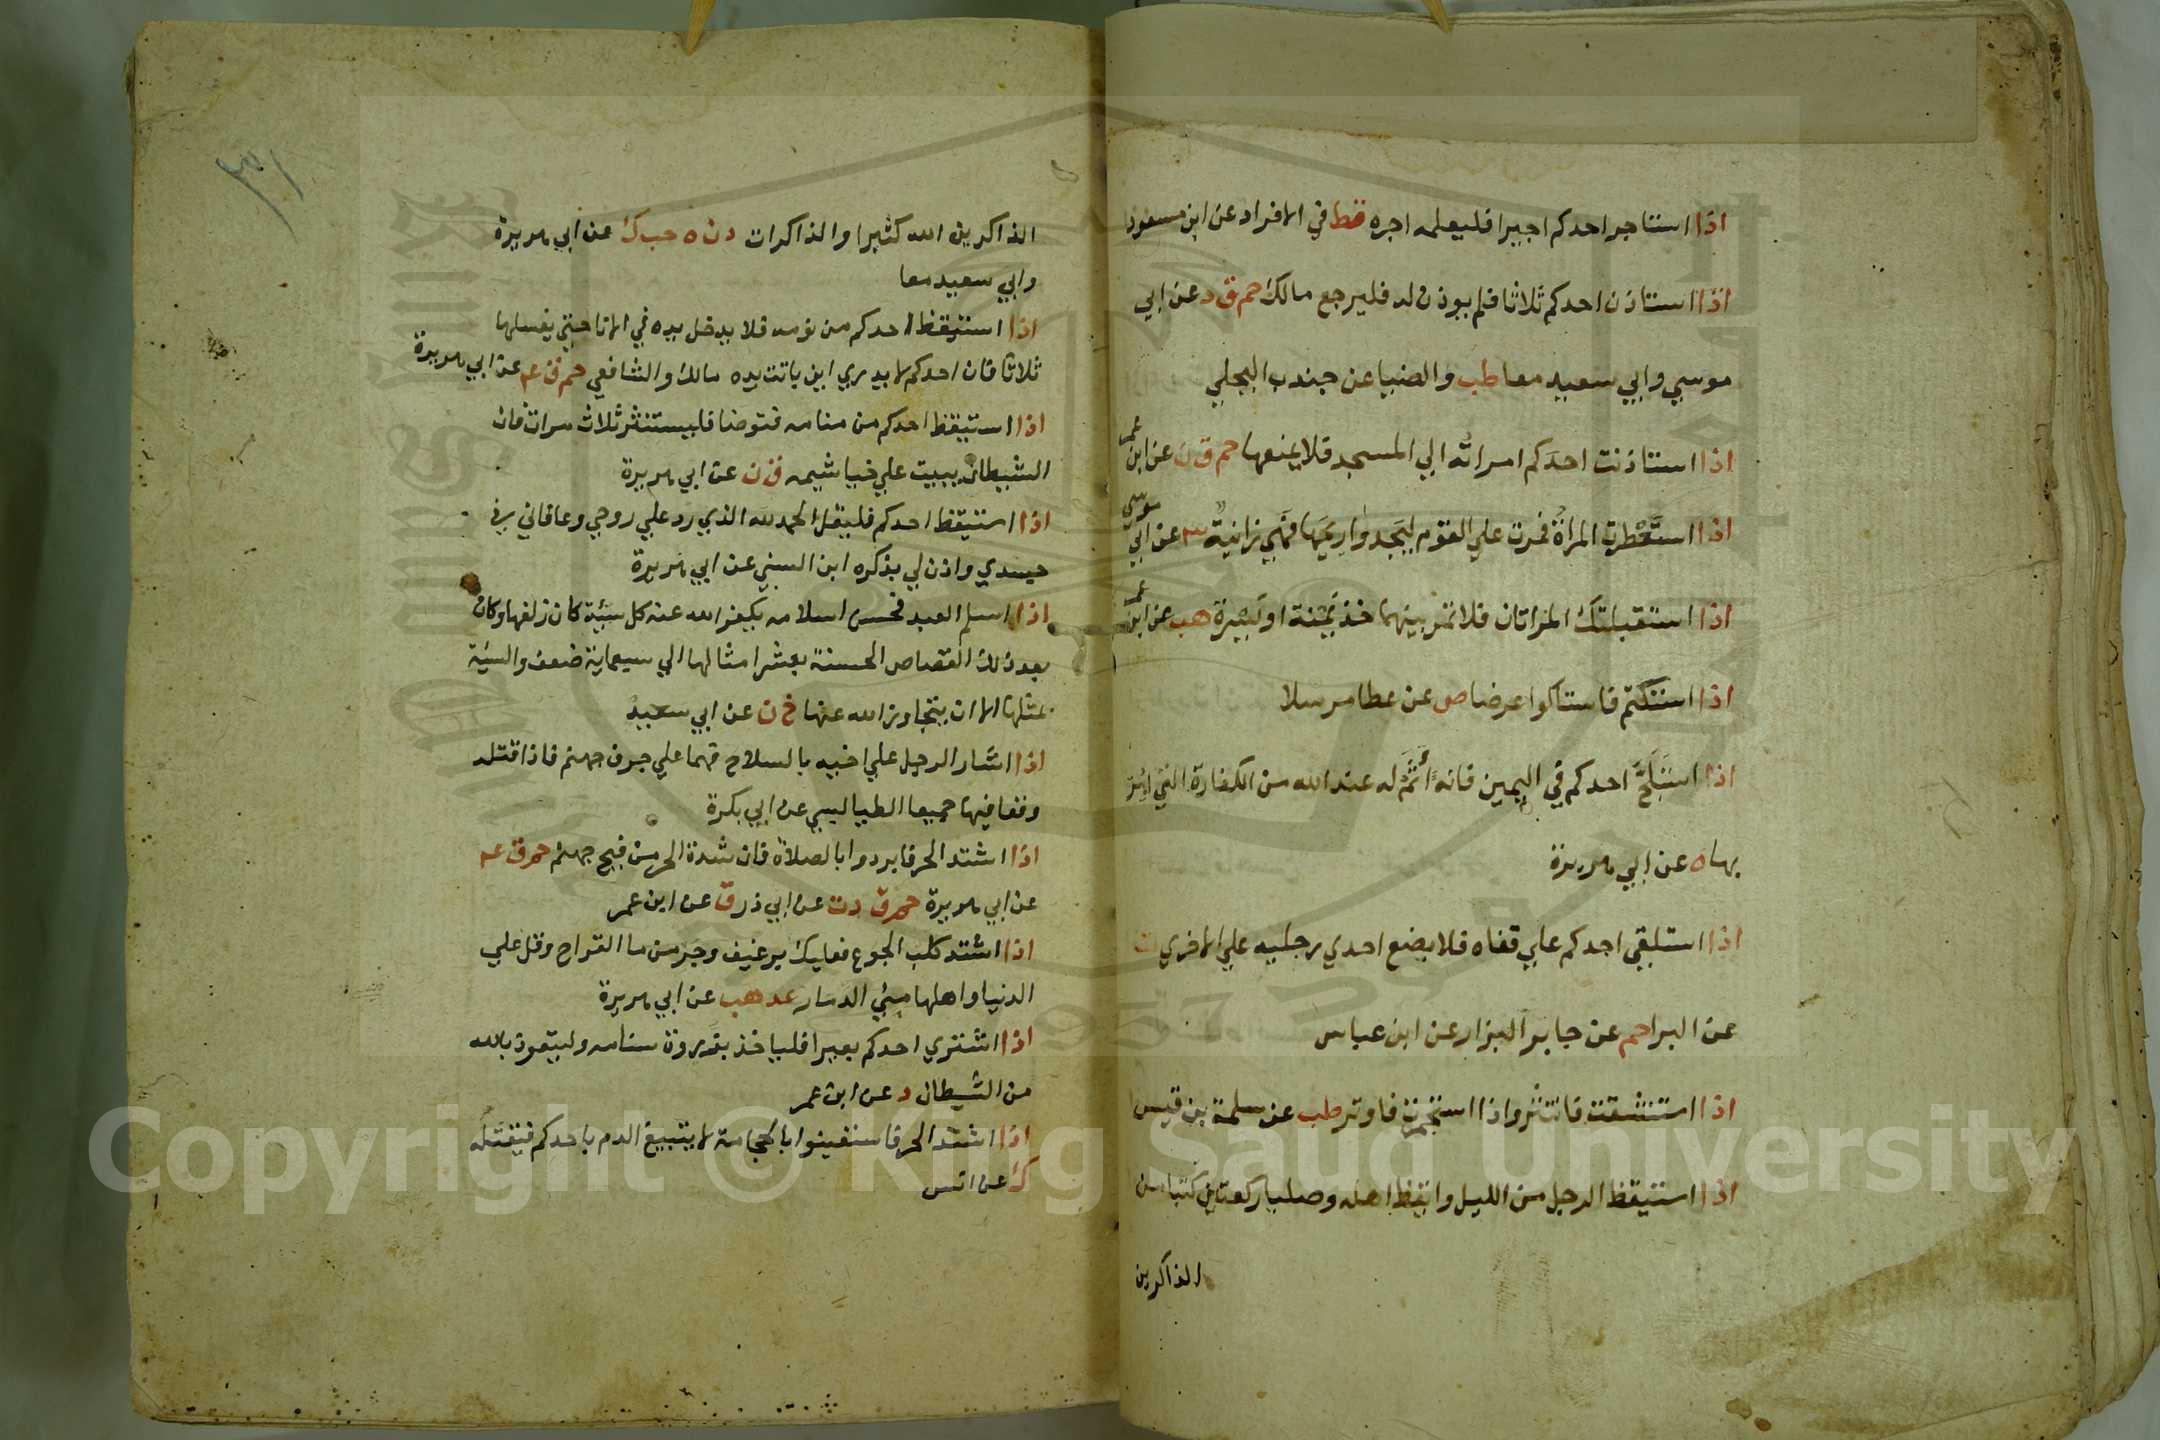 اذا استاجر احدكم اجيرا فليعلمه اجره قط في الافراد عن ابن مسعود
اذا استاذن احدكم ثلاثا فلم يوذن له فليرجع مالك حم ق د عن ابي
موسي وابي سعيد معا طب والضيا عن جندب البجلي
اذا استاذنت احدكم امراته الي المسجد فلا يمنعها حم ق ن عن ابن عمر
اذا استعطرت المراة فمرت علي القوم ليجدوا ريحها فهي زانية ٣ عن ابي موسي
اذا استقبلتك المراتان فلا تمر بينهما خذ يمنة او يسرة هب عن ابن عمر
اذا استكتم فاستاكوا عرضا ص عن عطا مرسلا
اذا استلج احدكم في اليمين فانه أثم له عند الله من الكفارة التي امر
بها ه عن ابي هريرة
اذا استلقي احدكم علي قفاه فلا يضع احدي رجليه علي الاخري ت
عن البرا حم عن جابر البزار عن ابن عباس
اذا استنشقت فانتثر واذا استجمرت فاوتر طب عن سلمة بن قيس
اذا استيقظ الرجل من الليل وايقظ اهله وصليا ركعتين كتبا من
الذاكرين
٣١
الذاكرين الله كثيرا والذاكرات د ن ه حب ك عن ابي هريرة
وابي سعيد معا
اذا استيقظ احدكم من نومه فلا يدخل يده في الانا حتي يغسلها
ثلاثا فان احدكم لا يدري اين باتت يده مالك والشافعي حم ق عه عن ابي هريرة
اذا استيقظ احدكم من منامه فتوضا فليستنثر ثلاث مرات فان
الشيطان يبيت علي خياشيمه ق ن عن ابي هريرة
اذا استيقظ احدكم فليقل الحمد لله الذي رد علي روحي وعافاني في
جسدي واذن لي بذكره ابن السني عن ابي هريرة
اذا اسلم العبد فحسن اسلامه يكفر الله عنه كل سيئة كان زلفها وكان
بعد ذلك القصاص الحسنة بعشر امثالها الي سبعماية ضعف والسيئة
بمثلها الا ان يتجاوز الله عنها خ ن عن ابي سعيد
اذا اشار الرجل علي اخيه بالسلاح فهما علي جرف جهنم فاذا قتله
وقعا فيها جميعا الطيالسي عن ابي بكرة
اذا اشتد الحر فابردوا بالصلاة فان شدة الحر من فيح جهنم حم ق عه
عن ابي هريرة حم ق د ت عن ابي ذر ق عن ابن عمر
اذا اشتد كلب الجوع فعليك برغيف وجر من ما القراح وقل علي
الدنيا واهلها مني الدمار عد هب عن ابي هريرة
اذا اشتري احدكم بعيرا فلياخذ بذروة سنامه وليتعوذ بالله
من الشيطان د عن ابن عمر
اذا اشتد الحر فاستعينوا بالحجامة لا يتبيغ الدم باحدكم فيقتله
ك عن انس
Copyright © King Saud University
King Saud University
1957